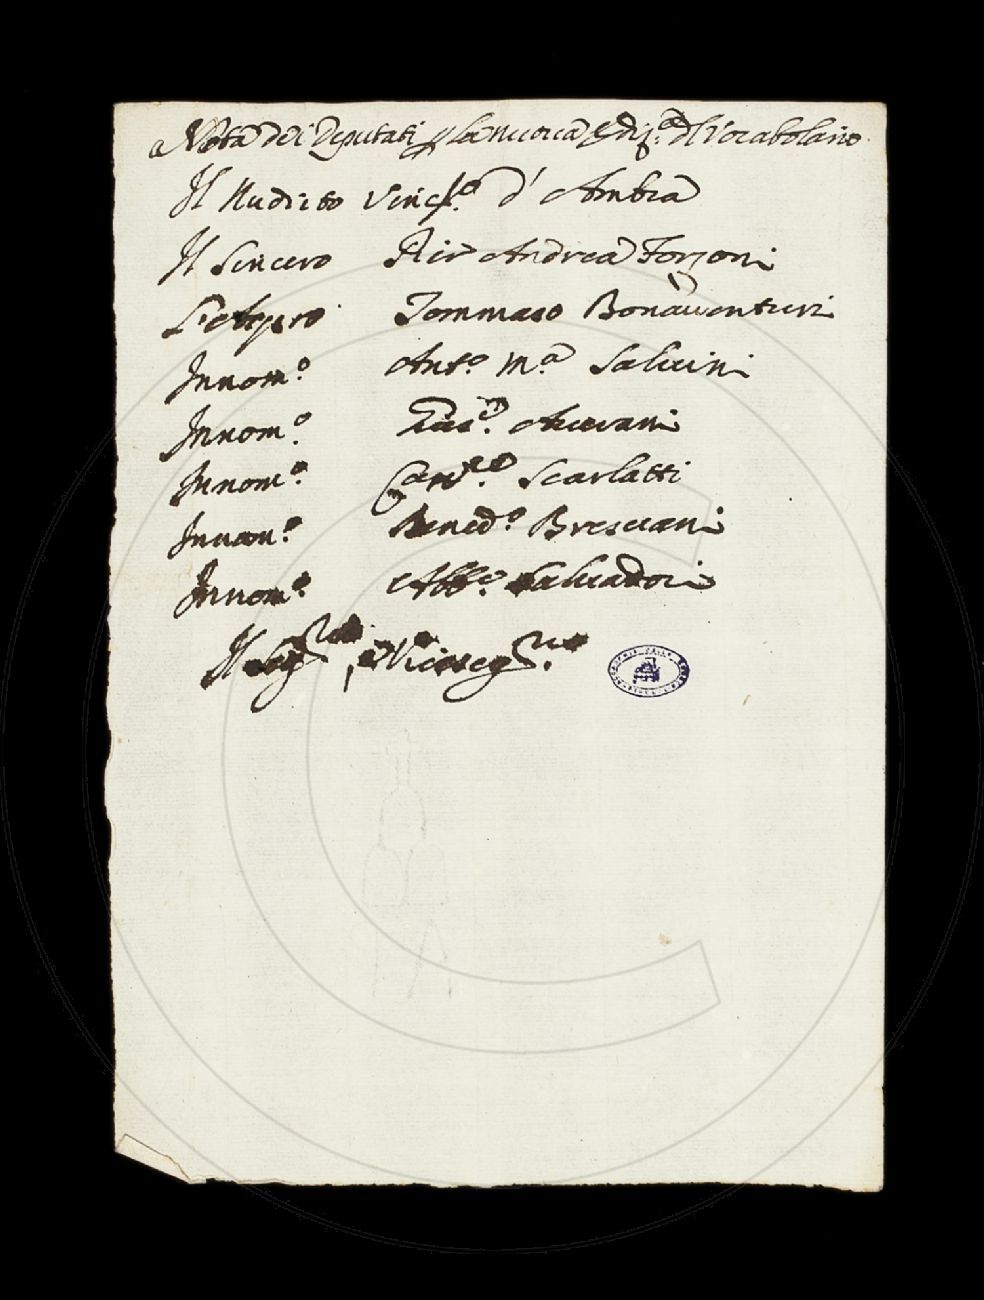 Nota dei Deputati p la nuova Ediz.ª del Vocabolario
Il Nudrito Vinc.º d'Ambra
Il Sincero Pier Andrea Forzoni
L'Aspro Tommaso Bonaventuri
Innom.º Ant.º M.ª Salvini
Innom.º Averani
Innom.º Can.co Scarlatti
Innom.º Bened.º Bresciani
Innom.º Abb.e Salvadori
Il Seg.rio, Viceseg.rio